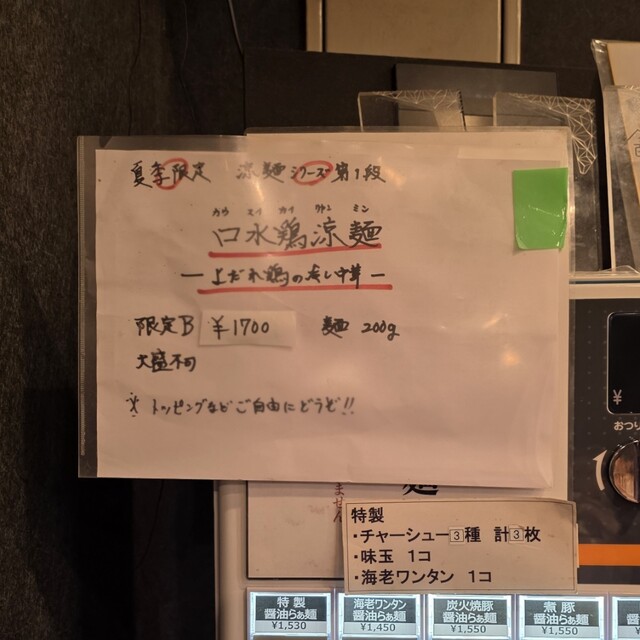 夏季限定 涼麺シリーズ第1段
カウ スイ カイ リャン ミン
口水鶏涼麺
ーよだれ鶏の冷し中華ー
限定B ¥1700 麺 200g
大盛不可
※ トッピングなどご自由にどうぞ!!
ません
麺
¥
おつり
特製
・チャーシュー3種 計3枚
・味玉 1コ
・海老ワンタン 1コ
特製
醤油らぁ麺
¥1,530
海老ワンタン
醤油らぁ麺
¥1,450
炭火焼豚
醤油らぁ麺
¥1,550
煮豚
醤油らぁ麺
¥1,550